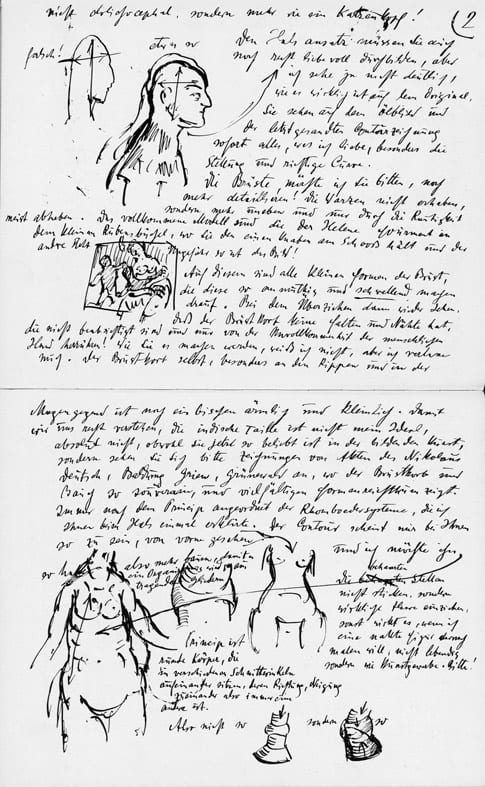 nicht dolichocephal, sondern mehr wie ein Katzenkopf!
(2
falsch!
etwa so
Den Halsansatz müssen Sie auch
noch recht liebevoll durchbilden, aber
ich sehe zu nicht deutlich,
wie es wirklich ist auf dem Original.
Sie sehen auf dem Ölbild und
der letztgesandten Conturzeichnung
sofort alles, was ich liebe, besonders die
Stellung und richtige Curve.
Die Brüste, möchte ich Sie bitten, noch
mehr detaillieren! Die Warzen nicht erhaben,
sondern mehr umoben und nur durch die Rauhigkeit
meist abheben. Das vollkommene Modell sind die der Helene Fourment in
dem kleinen Rubensbüchel, wo sie den einen Knaben am Schooss hält und der
andre steht
Ungefähr so ist das Bild!
Auf diesem sind alle kleinen Formen der Brust,
die diese so anmuthig und schwellend machen
drauf. Bei dem Überziehen dann wieder sehen,
daß der Brustkorb keine Falten und Nähte hat,
die nicht beabsichtigt sind und nur von der Unvollkommenheit der menschlichen
Hand herrühren! Wie Sie es machen werden, weiß ich nicht, aber ich vertraue
mich. Der Brustkorb selbst, besonders an den Rippen und in der
Magengegend ist noch ein bischen ärmlich und kleinlich. Damit
wir uns recht verstehen, die indische Taille ist nicht mein Ideal,
absolut nicht, obwohl sie jetzt so beliebt ist in der bildenden Kunst,
sondern sehen Sie sich bitte Zeichnungen von Akten des Nikolaus
Deutsch, Baldung Grien, Grünewald an, wo der Brustkorb und
Bauch so souverain, und vielfältigen Formenreichthum zeigt.
Immer nach dem Princip angeordnet der Rhomboedersysteme, die ich
Ihnen beim Hals einmal erklärte. Der Contour scheint mir bei Ihnen
so zu sein, von vorn gesehen
und ich möchte ihn
so haben
also mehr
Die behaarten Stellen
nicht sticken, sondern
wirkliche Haare einziehen,
sonst wirkt es, wenn ich
eine nackte Figur darnach
malen will, nicht lebendig
sondern wie Kunstgewerbe. Bitte!
Princip ist
runde Körper, die
in verschiedenen Schnittwinkeln
aufeinander sitzen, deren Richtung, Neigung
zueinander also immer eine
andre ist.
Also nicht so
sondern so